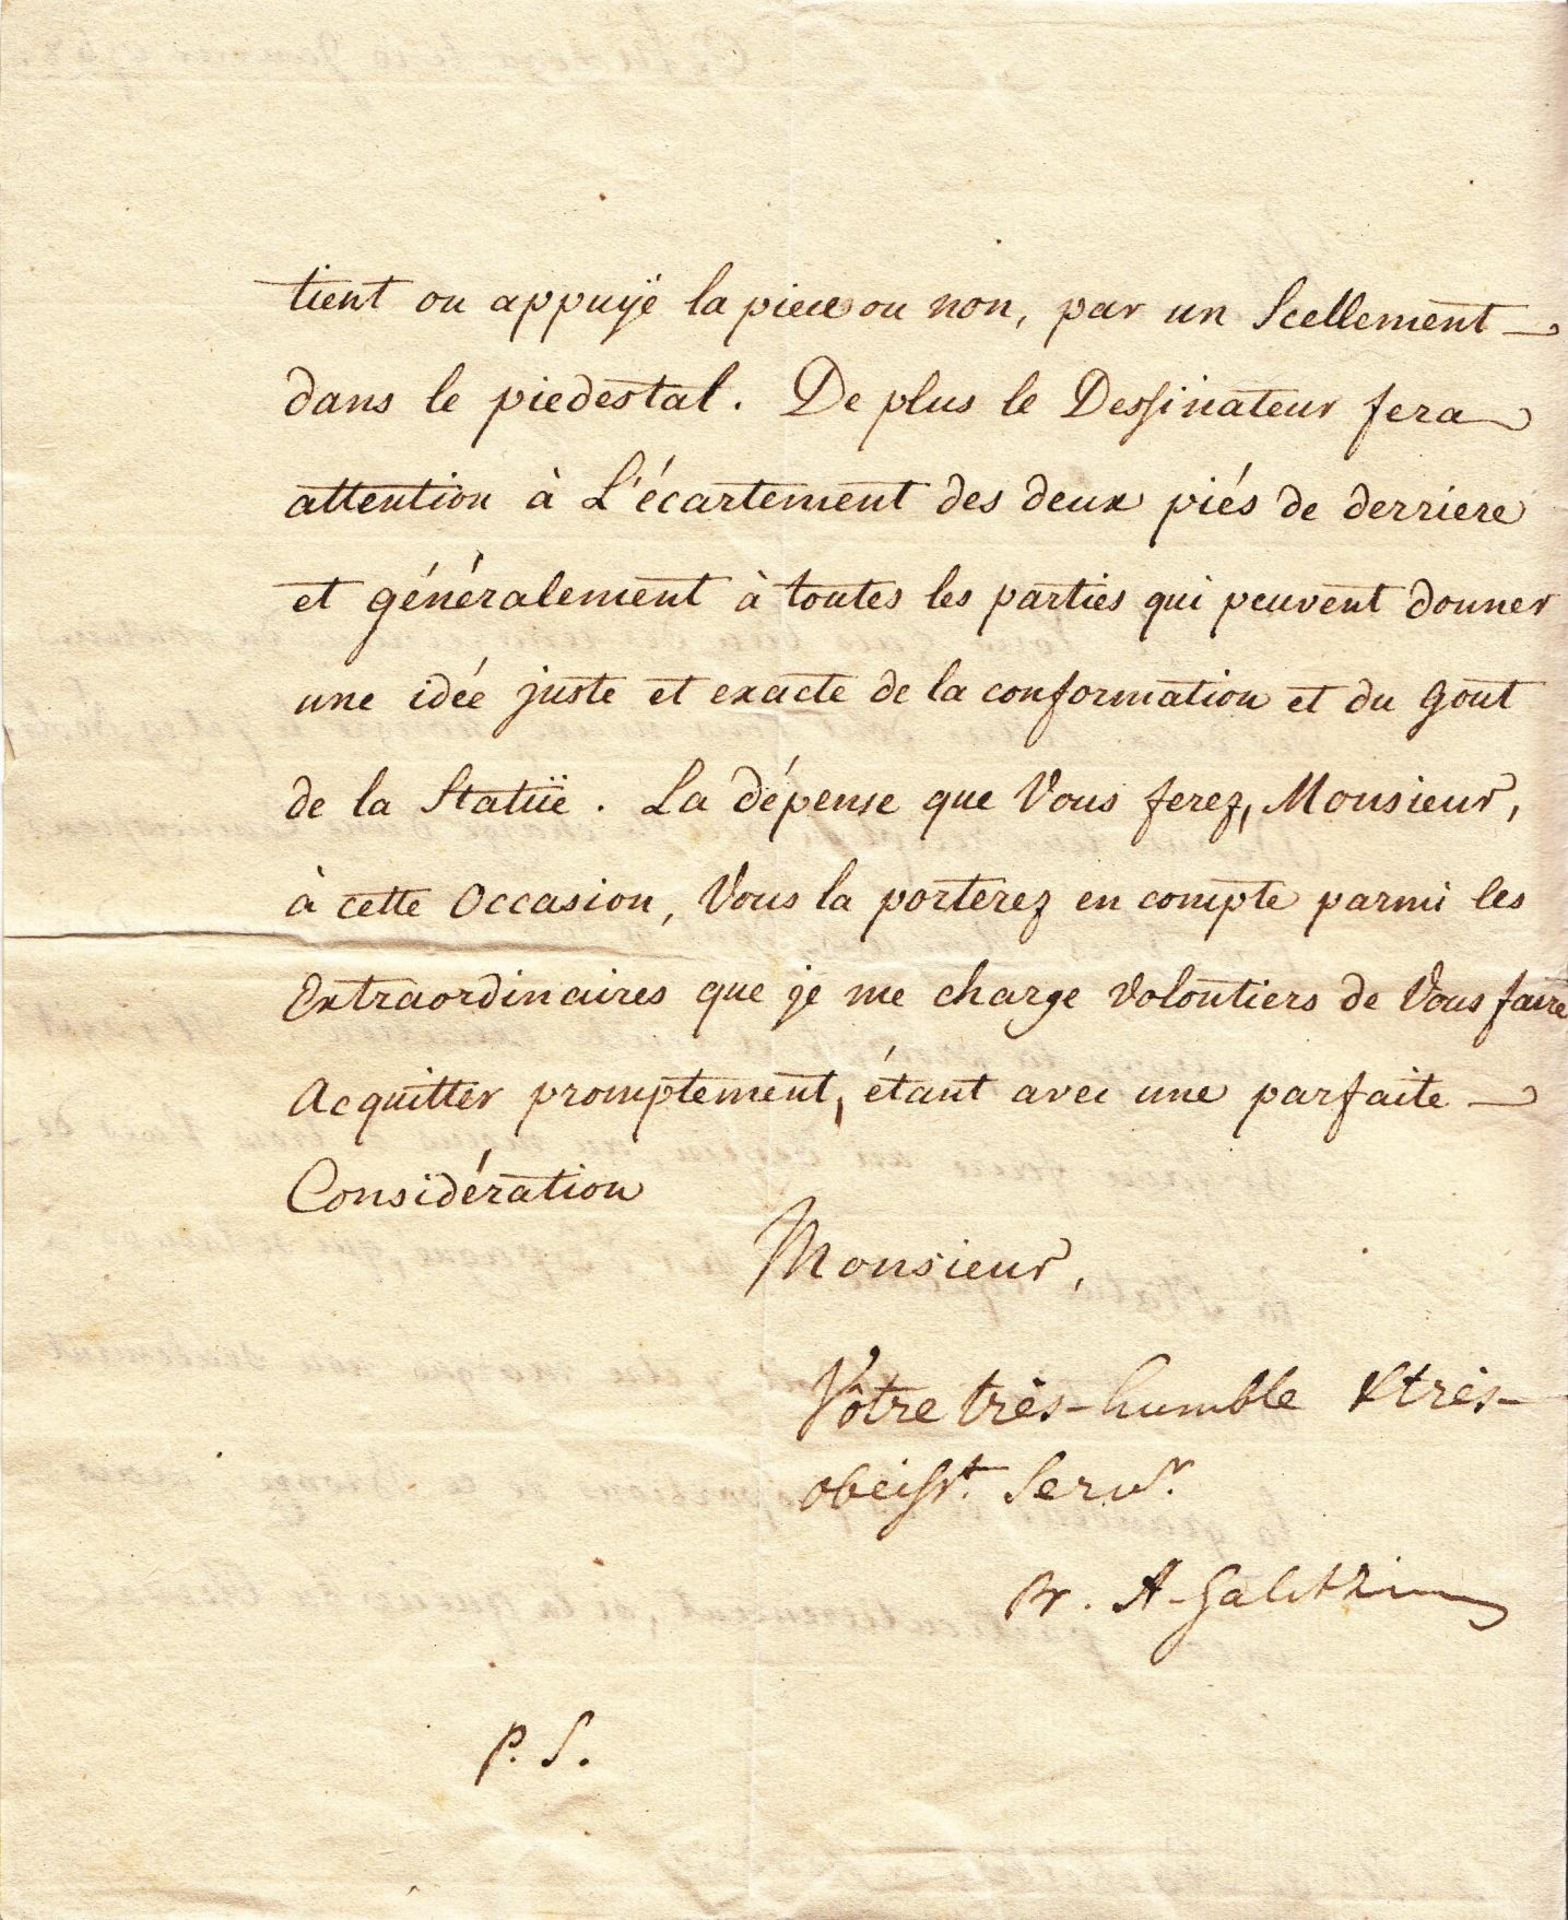 tient ou appuÿé la piece ou non, par un Scellement
dans le piedestal. De plus le Dessinateur fera
attention à L'écartement des deux piés de derriere
et généralement à toutes les parties qui peuvent donner
une idée juste et exacte de la conformation et du Gout
de la Statüe. La dépense que Vous ferez, Monsieur,
à cette Occasion, Vous la porterez en compte parmi les
Extraordinaires que je me charge volontiers de Vous faire
Acquitter promptement, étant avec une parfaite
Considération
Monsieur,
Vôtre très-humble & très-
obeisst. Servr.
Pr. A. Galitzin
P. S.